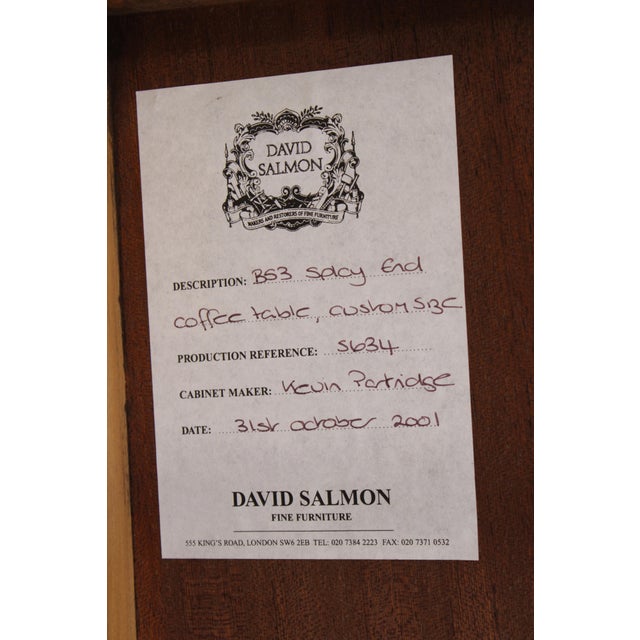 DAVID
SALMON
MAKERS AND RESTORERS OF FINE FURNITURE
DESCRIPTION: BS3 Splay End
coffee table, custom size
PRODUCTION REFERENCE: S634
CABINET MAKER: Kevin Partridge
DATE: 31st october 2001
DAVID SALMON
FINE FURNITURE
555 KING'S ROAD, LONDON SW6 2EB TEL: 020 7384 2223 FAX: 020 7371 0532